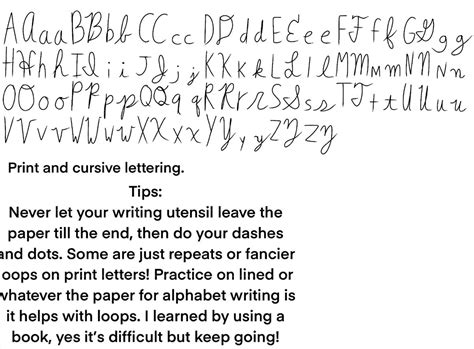 AAaaBBbbCCccDDddEEeeFFffGGgg
HHhhIIiiJJjjKKkkLLllMMmmNNnn
OOooPPppQQqqRRrrSSssTTttUUuu
VVvvWWwwXXxxYYyyZZzz
Print and cursive lettering.
Tips:
Never let your writing utensil leave the
paper till the end, then do your dashes
and dots. Some are just repeats or fancier
oops on print letters! Practice on lined or
whatever the paper for alphabet writing is
it helps with loops. I learned by using a
book, yes it's difficult but keep going!